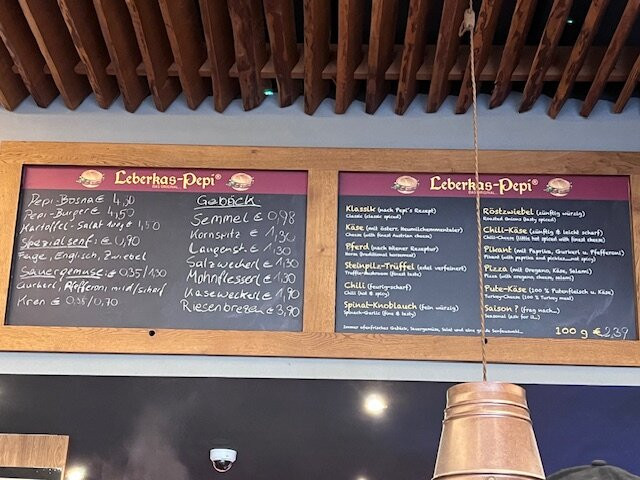 Leberkas-Pepi®
DAS ORIGINAL
Pepi-Bosna € 4,30
Pepi-Burger € 4,50
Kartoffel-Salat 100g € 1,50
Spezialsenf: € 0,70
Feige, Englisch, Zwiebel
Sauergemüse: € 0,35/1,30
Gurkerl, Pfefferoni mild/scharf
Kren € 0,35/0,70
Gebäck
Semmel € 0,98
Kornspitz € 1,30
Laugenst. € 1,30
Salzweckerl € 1,30
Mohnflesserl € 1,30
Käseweckerl € 1,90
Riesenbrezen € 3,90
Leberkas-Pepi®
DAS ORIGINAL
Klassik (nach Pepi's Rezept)
Classic (classic spiced)
Käse (mit österr. Heumilchemmentaler)
Cheese (with finest Austrian cheese)
Pferd (nach Wiener Rezeptur)
Horse (traditional horsemeat)
Steinpilz-Trüffel (edel verfeinert)
Truffle-Mushroom (finest taste)
Chili (feurig-scharf)
Chili (hot & spicy)
Spinat-Knoblauch (fein würzig)
Spinach-Garlic (fine & tasty)
Immer ofenfrisches Gebäck, Sauergemüse, Salat und eine große Senfauswahl...
Röstzwiebel (zünftig würzig)
Roasted Onions (tasty spiced)
Chili-Käse (zünftig & leicht scharf)
Chili-Cheese (little hot spiced with finest cheese)
Pikant (mit Paprika, Gurkerl u. Pfefferoni)
Pikant (with paprika and pickles...and spicy)
Pizza (mit Oregano, Käse, Salami)
Pizza (with oregano, cheese, salami)
Pute-Käse (100 % Putenfleisch u. Käse)
Turkey-Cheese (100 % Turkey meat)
Saison ? (frag nach...)
Seasonal (ask for it...)
100 g € 2,39